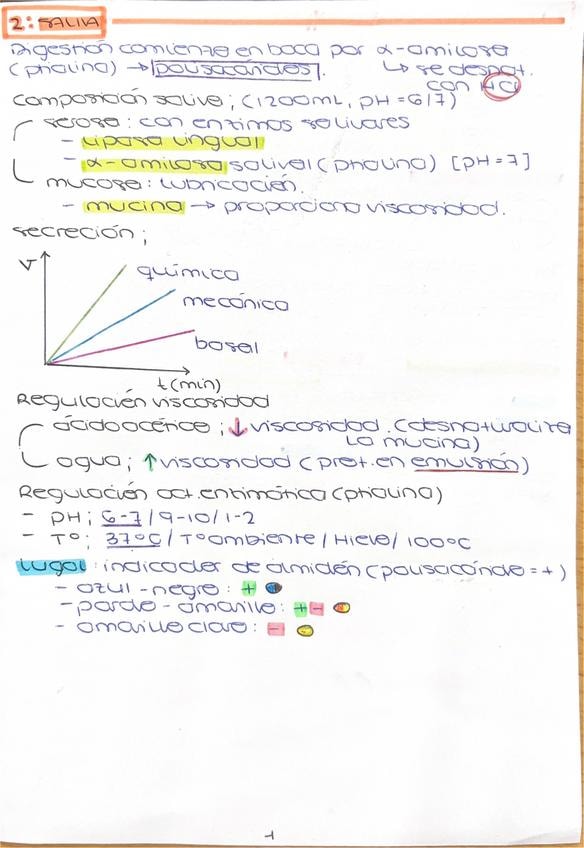 2: SALIVA
Digestión comienza en boca por α-amilasa
(ptialina) → polisacáridos. ↳ se desnat.
con HCl
composición saliva; (1200mL, pH=6/7)
serosa: con enzimas salivares
- Lipasa lingual
- α-amilasa salival (ptialina) [pH=7]
mucosa: Lubricación.
- mucina → proporciona viscosidad.
secreción;
V
química
mecánica
basal
t(min)
Regulación viscosidad
ácido acético; ↓ viscosidad. (desnaturaliza
La mucina)
agua; ↑ viscosidad (prot. en emulsión)
Regulación act. enzimática (ptialina)
- pH; 6-7/9-10/1-2
- Tº; 37ºC/Tºambiente/Hielo/100ºC
Lugol: indicador de almidón (polisacárido=+)
- azul-negro: +
- pardo-amarillo: + -
- amarillo claro: -
1